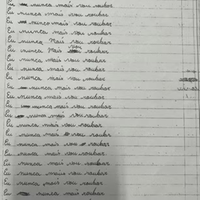 Eu nunca mais vou roubar
Eu nunca mais vou roubar
Eu nunca mais vou roubar
Eu nunca mais vou roubar
Eu nunca mais vou roubar
Eu nunca mais vou roubar
Eu nunca mais vou roubar
Eu nunca mais vou roubar
Eu nunca mais vou roubar
Eu nunca mais vou roubar
Eu nunca mais vou roubar
Eu nunca mais vou roubar
Eu nunca mais vou roubar
Eu nunca mais vou roubar
Eu nunca mais vou roubar
Eu nunca mais vou roubar
Eu nunca mais vou roubar
Eu nunca mais vou roubar
Eu nunca mais vou roubar
Eu nunca mais vou roubar